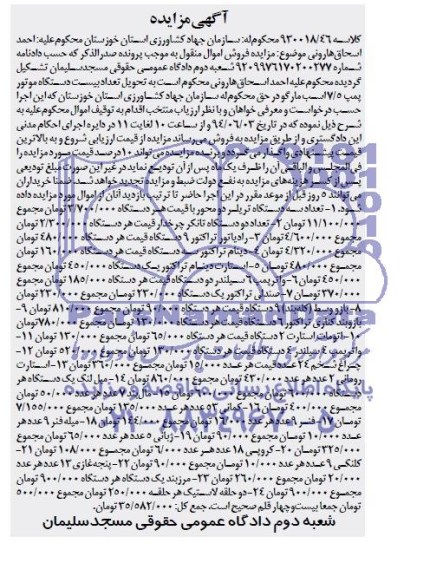 آگهی مزایده
کلاسه ۹۳۰۰۱۸/۴۶ محکوم‌له: سازمان جهاد کشاورزی استان خوزستان محکوم‌علیه: احمد
اسحاق‌هارونی موضوع: مزایده فروش اموال منقول به موجب پرونده صدرالذکر که حسب دادنامه
شماره ۹۲۰۹۹۷۶۱۷۰۲۰۰۲۷۷ شعبه دوم دادگاه عمومی حقوقی مسجدسلیمان تشکیل
گردیده محکوم‌علیه احمد اسحاق‌هارونی محکوم است به تحویل تعداد بیست دستگاه موتور
پمپ ۷/۵ اسب مارگو در حق محکوم‌له سازمان جهاد کشاورزی استان خوزستان که این اجرا
حسب درخواست و معرفی خواهان و با نظر ارزیاب منتخب اقدام به توقیف اموال محکوم‌علیه به
شرح ذیل نموده که در تاریخ ۹۴/۰۶/۲۳ و از ساعت ۱۰ لغایت ۱۱ در دایره اجرای احکام مدنی
این دادگستری و از طریق مزایده به فروش می‌رساند مزایده از قیمت ارزیابی شروع و به بالاترین
قیمت پیشنهادی واگذار می‌گردد و برنده مزایده می‌تواند ۱۰ درصد قیمت مورد مزایده را
فی‌المجلس و الباقی آن را ظرف یک ماه پس از آن تودیع نماید در غیر این صورت مبلغ تودیعی
پس از کسر هزینه‌های مزایده به نفع دولت ضبط و مزایده تجدید خواهد شد. ضمنا خریداران
می‌توانند ۵ روز قبل از موعد مقرر در این اجرا حاضر تا ترتیب بازدید آنان از اموال مورد مزایده داده
شود. ۱- تعداد سه دستگاه تریلر دو محور با قیمت هر دستگاه ۳/۷۰۰/۰۰۰ تومان مجموع
۱۱/۱۰۰/۰۰۰ تومان ۲- تعداد دو دستگاه تانکر چرخدار قیمت هر دستگاه ۲/۳۰۰/۰۰۰ تومان
مجموع ۴/۶۰۰/۰۰۰ تومان ۳- رادیاتور تراکتور ۹ دستگاه قیمت هر دستگاه ۴۸۰/۰۰۰ تومان
مجموع ۴/۳۲۰/۰۰۰ تومان ۴- دینام تراکتور سه دستگاه قیمت هر دستگاه ۱۶۰/۰۰۰ تومان
مجموع ۴۸۰/۰۰۰ تومان ۵- استارت دینام تراکتور یک دستگاه ۴۵۰/۰۰۰ تومان مجموع
۴۵۰/۰۰۰ تومان ۶- واترپمپ ۶ سیلندر دو دستگاه قیمت هر دستگاه ۱۸۵/۰۰۰ تومان مجموع
۳۷۰/۰۰۰ تومان ۷- صندلی تراکتور یک دستگاه ۲۳۰/۰۰۰ تومان مجموع ۲۳۰/۰۰۰ تومان
۸- بازو وسط ۹ دستگاه قیمت هر دستگاه ۹۰/۰۰۰ تومان مجموع ۸۱۰/۰۰۰ تومان ۹-
بازو بند کناری تراکتور ۶ دستگاه قیمت هر دستگاه ۱۳۰/۰۰۰ تومان مجموع ۷۸۰/۰۰۰ تومان
۱۰- اتومات استارت ۲ دستگاه قیمت هر دستگاه ۶۵/۰۰۰ تومان مجموع ۱۳۰/۰۰۰ تومان ۱۱-
واترپمپ ۴ سیلندر ۴ دستگاه قیمت هر دستگاه ۱۳۰/۰۰۰ تومان مجموع ۵۲۰/۰۰۰ تومان ۱۲-
چراغ شخم ۲۴ عدد قیمت هر عدد ۱۵/۰۰۰ تومان مجموع ۳۶۰/۰۰۰ تومان ۱۳- استارت
رومانی ۲ عدد هر عدد ۴۳۰/۰۰۰ تومان مجموع ۸۶۰/۰۰۰ تومان ۱۴- میل لنگ یک دستگاه هر
مجموع ۴۰۰/۰۰۰ تومان ۱۶- کمانی ۵۳ عدد هر عدد ۱۳۵/۰۰۰ تومان مجموع ۷/۱۵۵/۰۰۰
تومان ۱۷- فنر ۹ عدد هر عدد ۱۶/۰۰۰ تومان مجموع ۱۴۴/۰۰۰ تومان ۱۸- میله فنر ۹ عدد هر
عدد ۱۰/۰۰۰ تومان مجموع ۹۰/۰۰۰ تومان ۱۹- زبانی ۵ عدد هر عدد ۶۵/۰۰۰ تومان مجموع
۳۲۵/۰۰۰ تومان ۲۰- کروپی ۱۸ عدد هر عدد ۶/۰۰۰ تومان مجموع ۱۰۸/۰۰۰ تومان ۲۱-
کلنگسی ۹ عدد هر عدد ۱۰/۰۰۰ تومان مجموع ۹۰/۰۰۰ تومان ۲۲- پنجه غازی ۱۳ عدد هر عدد
۲۰/۰۰۰ تومان مجموع ۲۶۰/۰۰۰ تومان ۲۳- مرزبند یک دستگاه هر دستگاه ۹۰۰/۰۰۰ تومان
مجموع ۹۰۰/۰۰۰ تومان ۲۴- دو حلقه لاستیک هر حلقه ۲۵۰/۰۰۰ تومان مجموع ۵۰۰/۰۰۰
تومان جمعا بیست و چهار قلم صحیح است. جمع کل: ۳۵/۵۸۲/۰۰۰ تومان.
شعبه دوم دادگاه عمومی حقوقی مسجدسلیمان
پایگاه اطلاع رسانی مناقصه و مزایده
۰۲۱-۸۸۳۴۹۶۷۰-۵